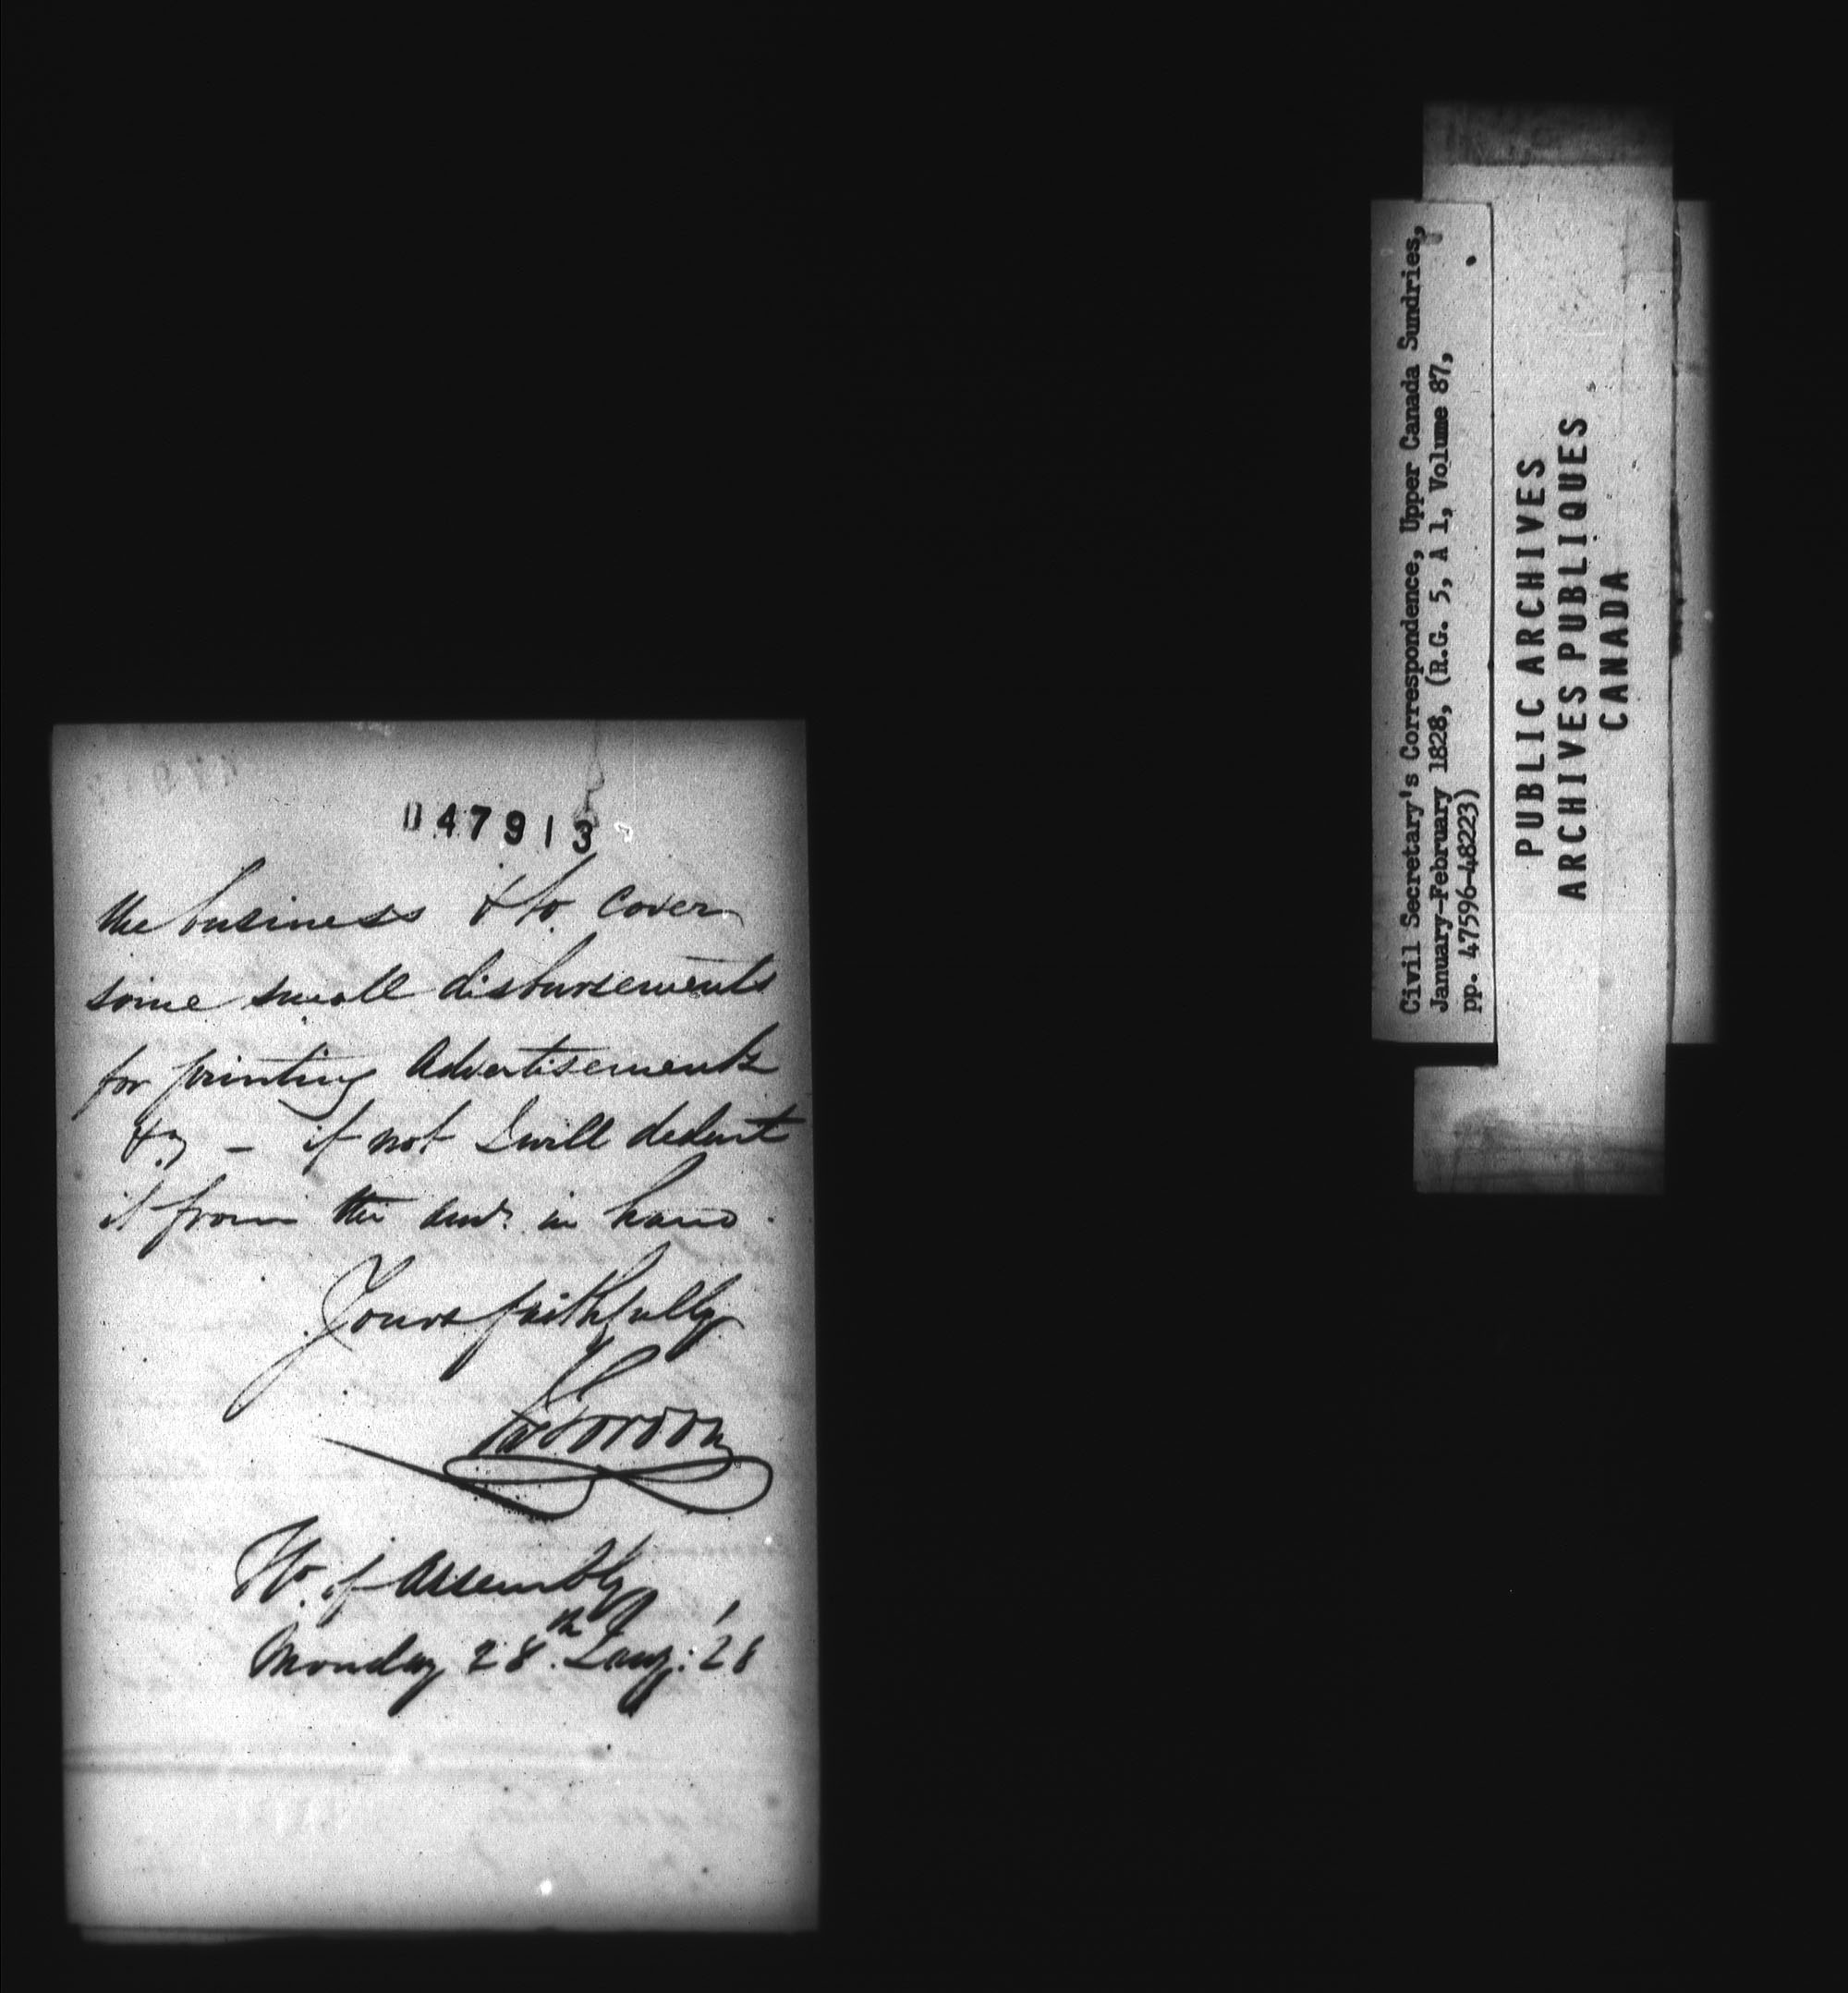 047913
the business & to cover
some small disbursements
for printing Advertisements
&c – if not I will deduct
it from the amt. in hand.
Yours faithfully
Gordon
Ho. of Assembly
Monday 28.th Jany. '28
Civil Secretary's Correspondence, Upper Canada Sundries,
January-February 1828, (R.G. 5, A 1, Volume 87,
pp. 47596-48223)
PUBLIC ARCHIVES
ARCHIVES PUBLIQUES
CANADA